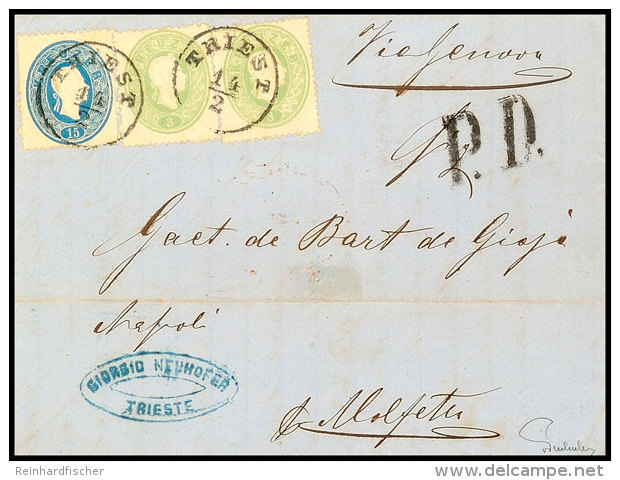 TRIEST
14
2
TRIEST
14
2
15
3
Via Genova
P.D.
Gaet. de Bart de Gioja
Napoli
GIORGIO NEUHOFER
TRIESTE
Molfetta
Reinhardfischer
delcampe.net